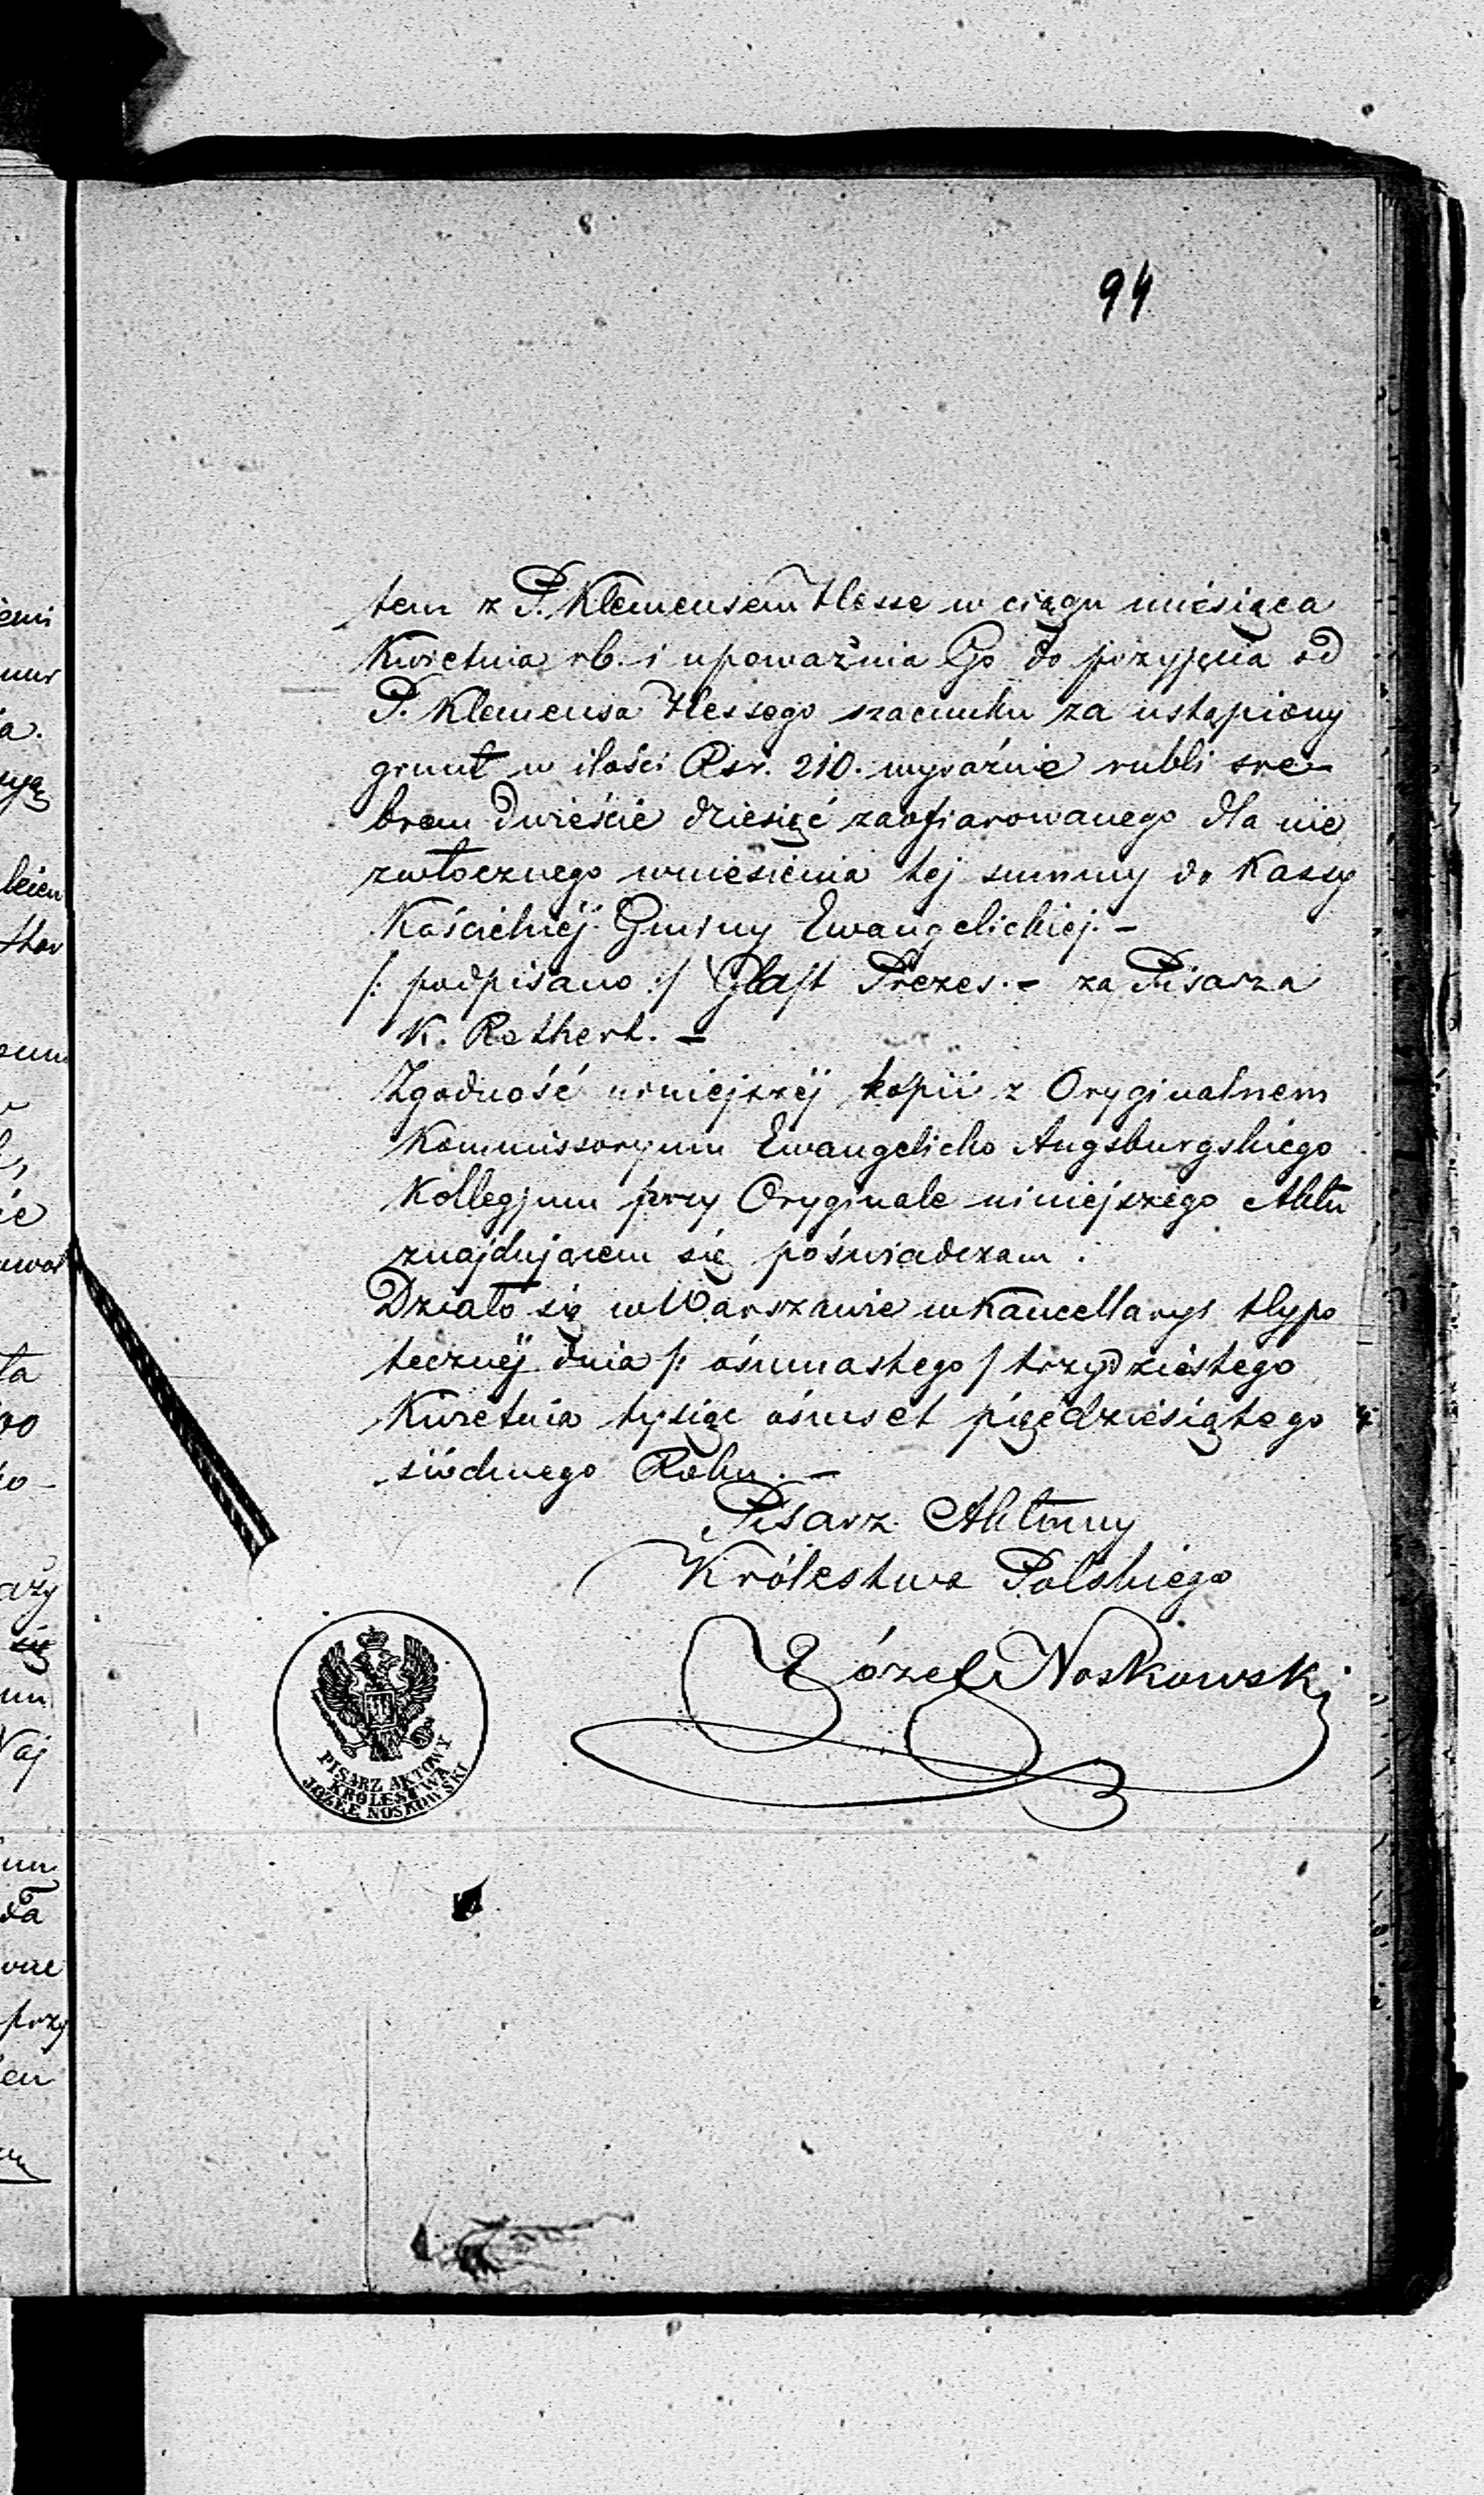 94
tem z P. Klemensem Hesse w ciągu miesiąca
Kwietnia rb. i upoważnia Go do przyjęcia od
P. Klemensa Hessego szacunku za ustąpiony
grunt w ilości Rsr. 210. wyraźnie rubli sre-
brem dwieście dziesięć zaofiarowanego dla nie
zwłocznego wniesienia tej summy do Kassy
Kościelnéj Gminy Ewangelickiej. -
/: podpisano :/ Glaft Prezes. - za Pisarza
K. Rothert. -
Zgodność niniejszéj kopii z Oryginalnem
Kommissoryum Ewangelicko Augsburgskiego
Kollegjum przy Oryginale niniejszego Aktu
znajdującem się poświadczam.
Działo się w Warszawie w Kancellaryi Hypo
tecznéj dnia /: ośmnastego / trzydziestego
Kwietnia tysiąc ośmset pięćdziesiątego
siódmego Roku. -
Pisarz Aktowy
Królestwa Polskiego
Józef Noskowski
PISARZ AKTOWY
KRÓLESTWA
JÓZEF NOSKOWSKI